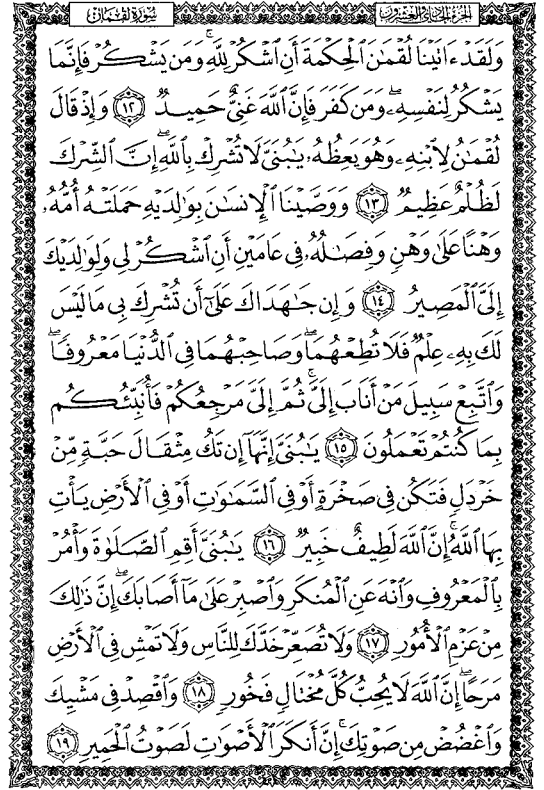 الجزء الحادي والعشرون
سورة لقمان
وَلَقَدْ ءَاتَيْنَا لُقْمَٰنَ ٱلْحِكْمَةَ أَنِ ٱشْكُرْ لِلَّهِ ۚ وَمَن يَشْكُرْ فَإِنَّمَا
يَشْكُرُ لِنَفْسِهِۦ ۖ وَمَن كَفَرَ فَإِنَّ ٱللَّهَ غَنِىٌّ حَمِيدٌ ١٢ وَإِذْ قَالَ
لُقْمَٰنُ لِٱبْنِهِۦ وَهُوَ يَعِظُهُۥ يَٰبُنَىَّ لَا تُشْرِكْ بِٱللَّهِ ۖ إِنَّ ٱلشِّرْكَ
لَظُلْمٌ عَظِيمٌ ١٣ وَوَصَّيْنَا ٱلْإِنسَٰنَ بِوَٰلِدَيْهِ حَمَلَتْهُ أُمُّهُۥ
وَهْنًا عَلَىٰ وَهْنٍ وَفِصَٰلُهُۥ فِى عَامَيْنِ أَنِ ٱشْكُرْ لِى وَلِوَٰلِدَيْكَ
إِلَىَّ ٱلْمَصِيرُ ١٤ وَإِن جَٰهَدَاكَ عَلَىٰٓ أَن تُشْرِكَ بِى مَا لَيْسَ
لَكَ بِهِۦ عِلْمٌ فَلَا تُطِعْهُمَا ۖ وَصَاحِبْهُمَا فِى ٱلدُّنْيَا مَعْرُوفًا ۖ
وَٱتَّبِعْ سَبِيلَ مَنْ أَنَابَ إِلَىَّ ۚ ثُمَّ إِلَىَّ مَرْجِعُكُمْ فَأُنَبِّئُكُم
بِمَا كُنتُمْ تَعْمَلُونَ ١٥ يَٰبُنَىَّ إِنَّهَآ إِن تَكُ مِثْقَالَ حَبَّةٍ مِّنْ
خَرْدَلٍ فَتَكُن فِى صَخْرَةٍ أَوْ فِى ٱلسَّمَٰوَٰتِ أَوْ فِى ٱلْأَرْضِ يَأْتِ
بِهَا ٱللَّهُ ۚ إِنَّ ٱللَّهَ لَطِيفٌ خَبِيرٌ ١٦ يَٰبُنَىَّ أَقِمِ ٱلصَّلَوٰةَ وَأْمُرْ
بِٱلْمَعْرُوفِ وَٱنْهَ عَنِ ٱلْمُنكَرِ وَٱصْبِرْ عَلَىٰ مَآ أَصَابَكَ ۖ إِنَّ ذَٰلِكَ
مِنْ عَزْمِ ٱلْأُمُورِ ١٧ وَلَا تُصَعِّرْ خَدَّكَ لِلنَّاسِ وَلَا تَمْشِ فِى ٱلْأَرْضِ
مَرَحًا ۖ إِنَّ ٱللَّهَ لَا يُحِبُّ كُلَّ مُخْتَالٍ فَخُورٍ ١٨ وَٱقْصِدْ فِى مَشْيِكَ
وَٱغْضُضْ مِن صَوْتِكَ ۚ إِنَّ أَنكَرَ ٱلْأَصْوَٰتِ لَصَوْتُ ٱلْحَمِيرِ ١٩